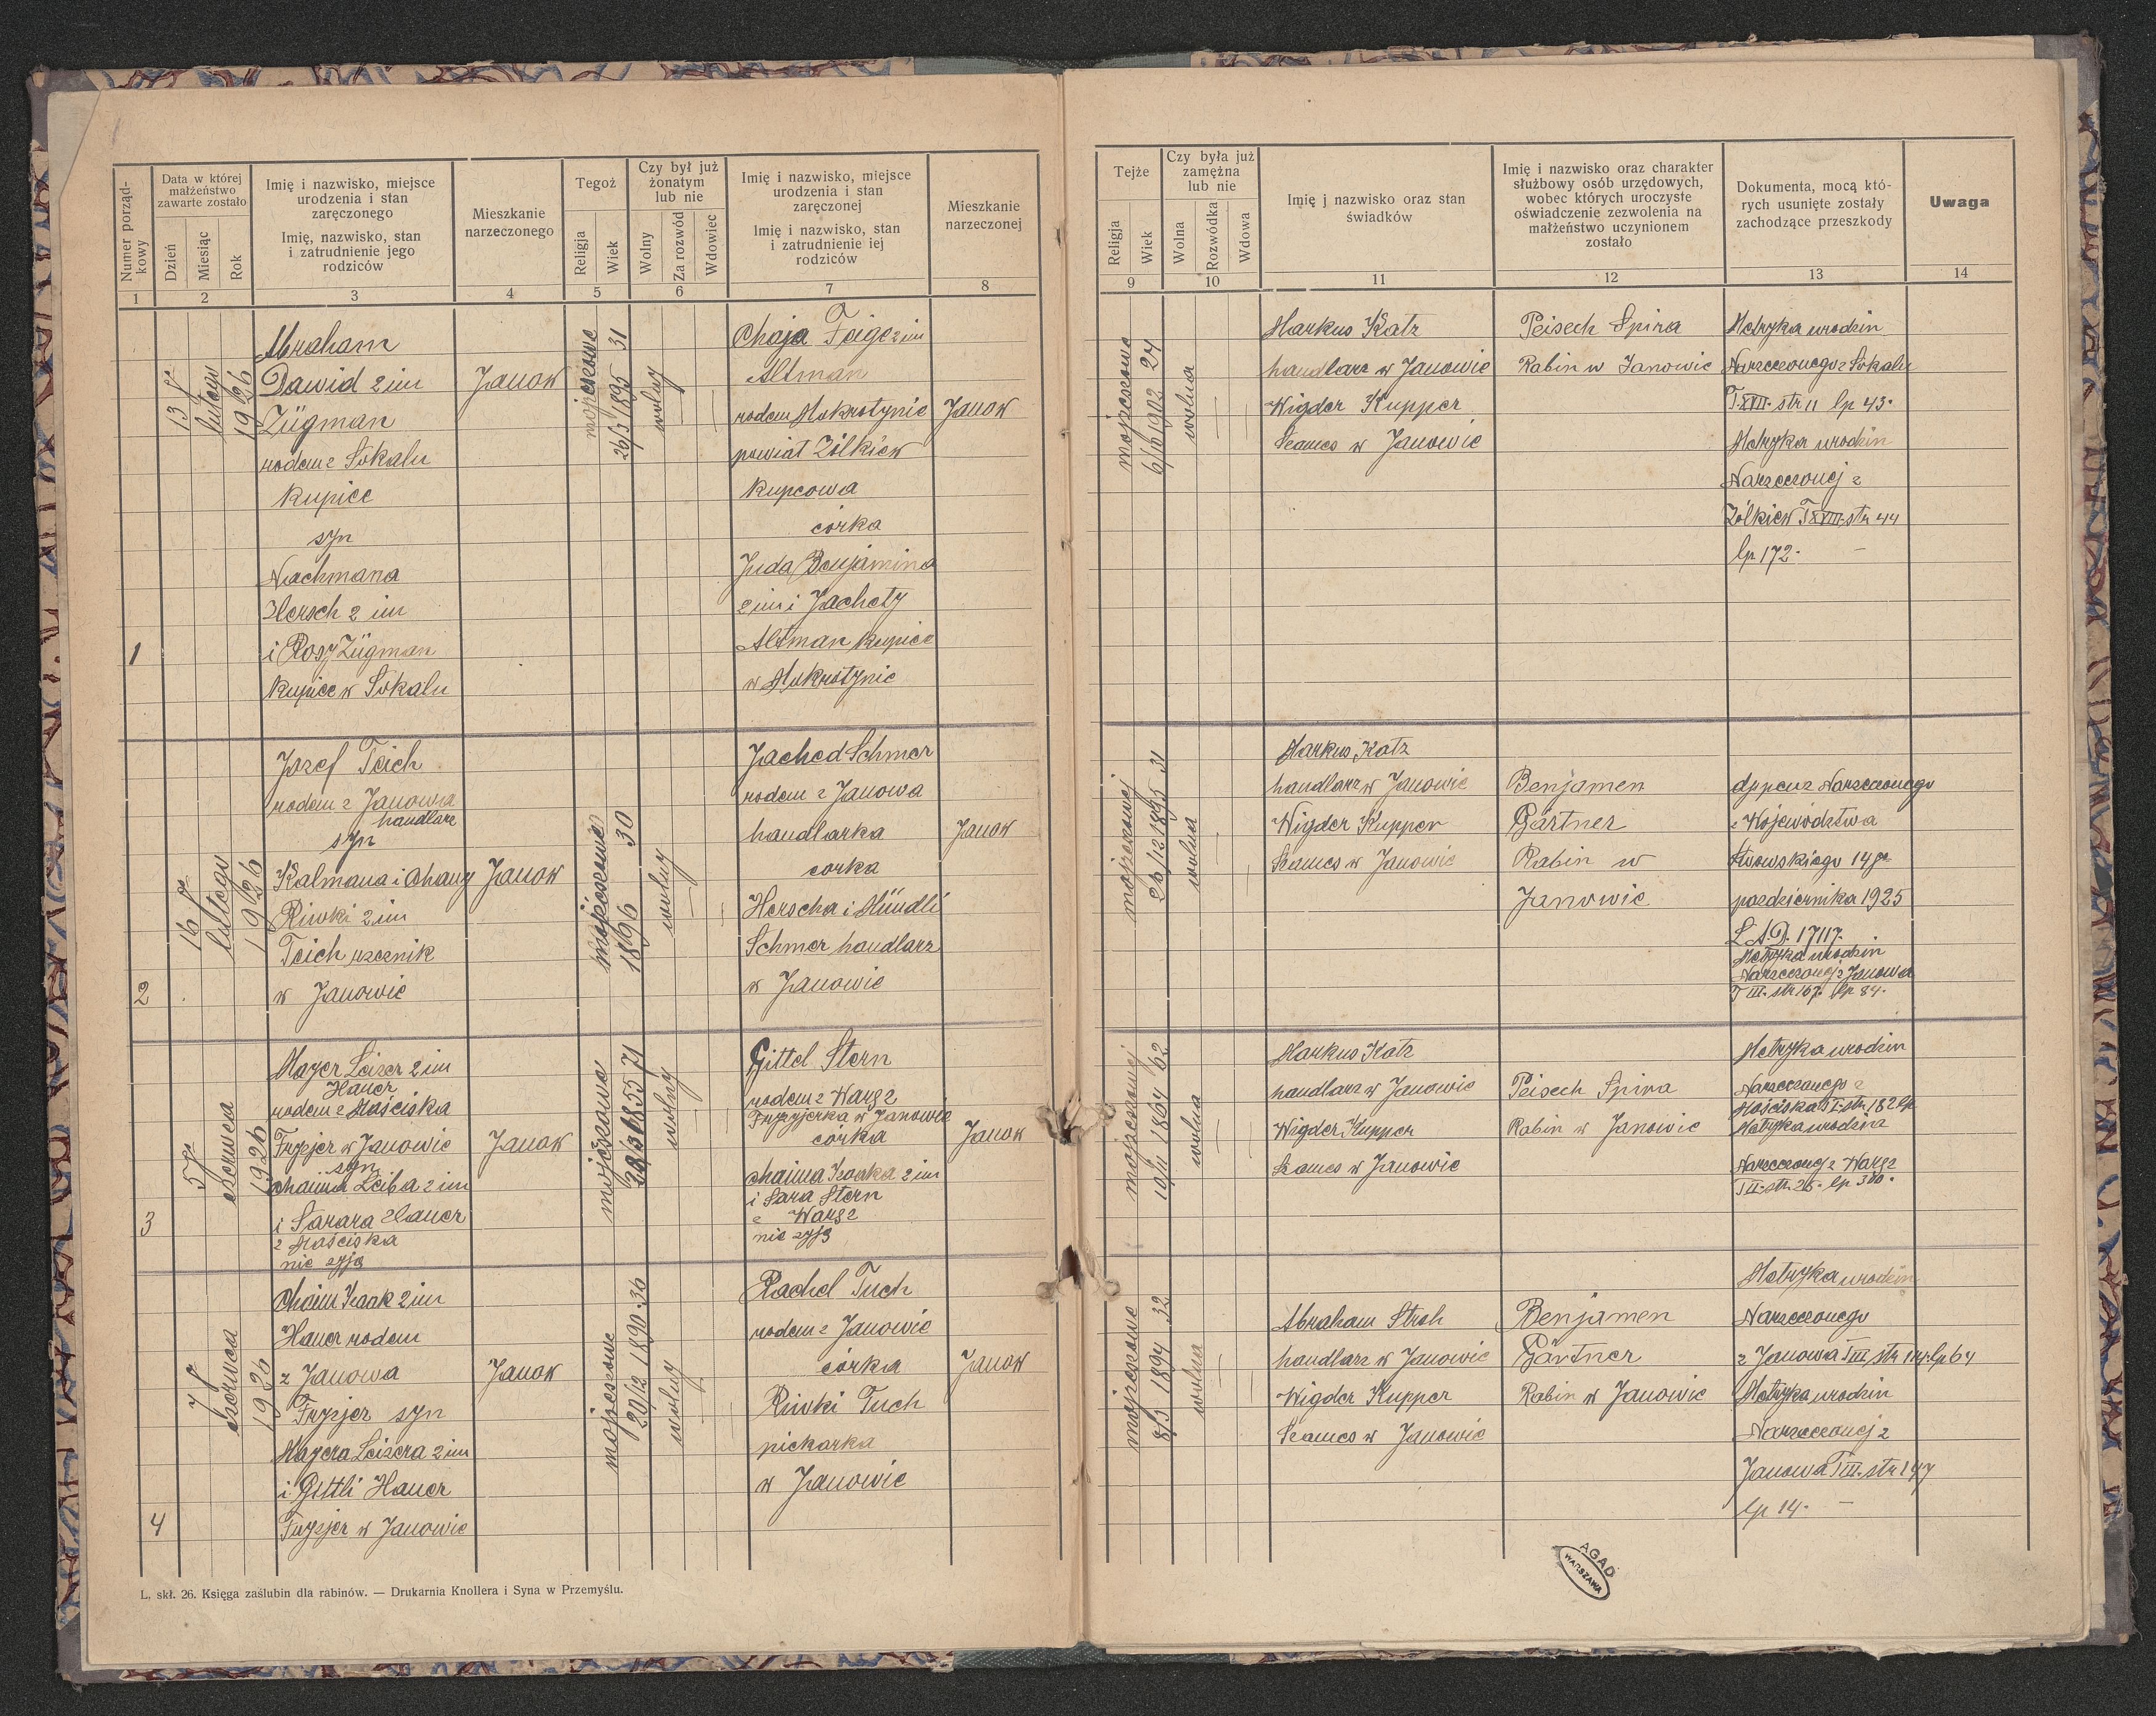 Numer porząd-
kowy
Data w której
małżeństwo
zawarte zostało
Dzień
Miesiąc
Rok
Imię i nazwisko, miejsce
urodzenia i stan
zaręczonego
Imię, nazwisko, stan
i zatrudnienie jego
rodziców
Mieszkanie
narzeczonego
Tegoż
Religja
Wiek
Czy był już
żonatym
lub nie
Wolny
Za rozwód
Wdowiec
Imię i nazwisko, miejsce
urodzenia i stan
zaręczonej
Imię i nazwisko, stan
i zatrudnienie iej
rodziców
Mieszkanie
narzeczonej
1
2
3
4
5
6
7
8
Tejże
Religja
Wiek
Czy była już
zamężna
lub nie
Wolna
Rozwódka
Wdowa
Imię j nazwisko oraz stan
świadków
Imię i nazwisko oraz charakter
służbowy osób urzędowych,
wobec których uroczyste
oświadczenie zezwolenia na
małżeństwo uczynionem
zostało
Dokumenta, mocą któ-
rych usunięte zostały
zachodzące przeszkody
Uwaga
9
10
11
12
13
14
1
13go
lutego
1926
Abraham
Dawid 2 im
Zügman
rodem z Sokalu
kupiec
syn
Nachmana
Hersch 2 im
i Rosy Zügman
kupiec w Sokalu
Janow
mojżeszowe
26/3 1895 31
wolny
Chaja Feige 2 im
Altman
rodem Mokrotynie
powiat Żółkiew
kupcowa
córka
Juda Benjamina
2 im i Jachety
Altman kupiec
w Mokrotynie
Janow
mojżeszowe
6/6 1902 24
wolna
Markus Katz
handlarz w Janowie
Wigder Kupper
Szames w Janowie
Peisech Spira
Rabin w Janowie
Metryka urodzin
Narzeczonego z Sokalu
T. XVII. str 11 lp 43.
Metryka urodzin
Narzeczonej z
Żółkiew T XVIII. str 44
lp 172.
2
16go
lutego
1926
Jozef Teich
rodem z Janowa
handlarz
syn
Kalmana i Chany
Riwki 2 im
Teich rzeznik
w Janowie
Janow
mojżeszowe
1896 30
wolny
Jached Schmer
rodem z Janowa
handlarka
corka
Herscha i Mündli
Schmer handlarz
w Janowie
Janow
mojżeszowej
26/12 1895 31
wolna
Markus Katz
handlarz w Janowie
Wigder Kupper
Szames w Janowie
Benjamen
Gärtner
Rabin w
Janowie
Narzeczonego
z Wojewodztwa
Lwowskiego 14go
pazdziernika 1925
L.A.D. 17117.
Metryka urodzin
Narzeczonej z Janowa
T III. str 167. lp 84.
3
5go
czerwca
1926
Mayer Leizer 2 im
Hauer
rodem z Mościska
Fryzjer w Janowie
syn
Chaima Leiba 2 im
i Sarara Hauer
z Mościska
nie żyją
Janow
mojżeszowe
28/3 1855 71
wolny
Gittel Stern
rodem z Waręz
Fryzyjerka w Janowie
córka
Chaima Izaaka 2 im
i Sara Stern
z Waręz
nie żyją
Janow
mojżeszowej
10/11 1864 62
wolna
Markus Katz
handlarz w Janowie
Wigder Kupper
Szames w Janowie
Peisech Spira
Rabin w Janowie
Metryka urodzin
Narzeczonego z
Mościska T I. str. 182 lp
Metryka urodzin
Narzeczonej z Waręz
T II. str. 26. lp 300.
4
7go
czerwca
1926
Chaim Izaak 2 im
Hauer rodem
z Janowa
Fryzjer syn
Mayera Leizera 2 im
i Gittli Hauer
Fryzjer w Janowie
Janow
mojżeszowe
20/12 1890. 36
wolny
Rachel Tuch
rodem z Janowie
córka
Riwki Tuch
piekarka
w Janowie
Janow
mojżeszowe
8/3 1894 32
wolna
Abraham Stroh
handlarz w Janowie
Wigder Kupper
Szames w Janowie
Benjamen
Gärtner
Rabin w Janowie
Metryka urodzin
Narzeczonego
z Janowa T III. str lp 64
Metryka urodzin
Narzeczonej z
Janowa T III. str 147
lp 14.
L. skł. 26. Księga zaślubin dla rabinów. — Drukarnia Knollera i Syna w Przemyślu.
AGAD
WARSZAWA